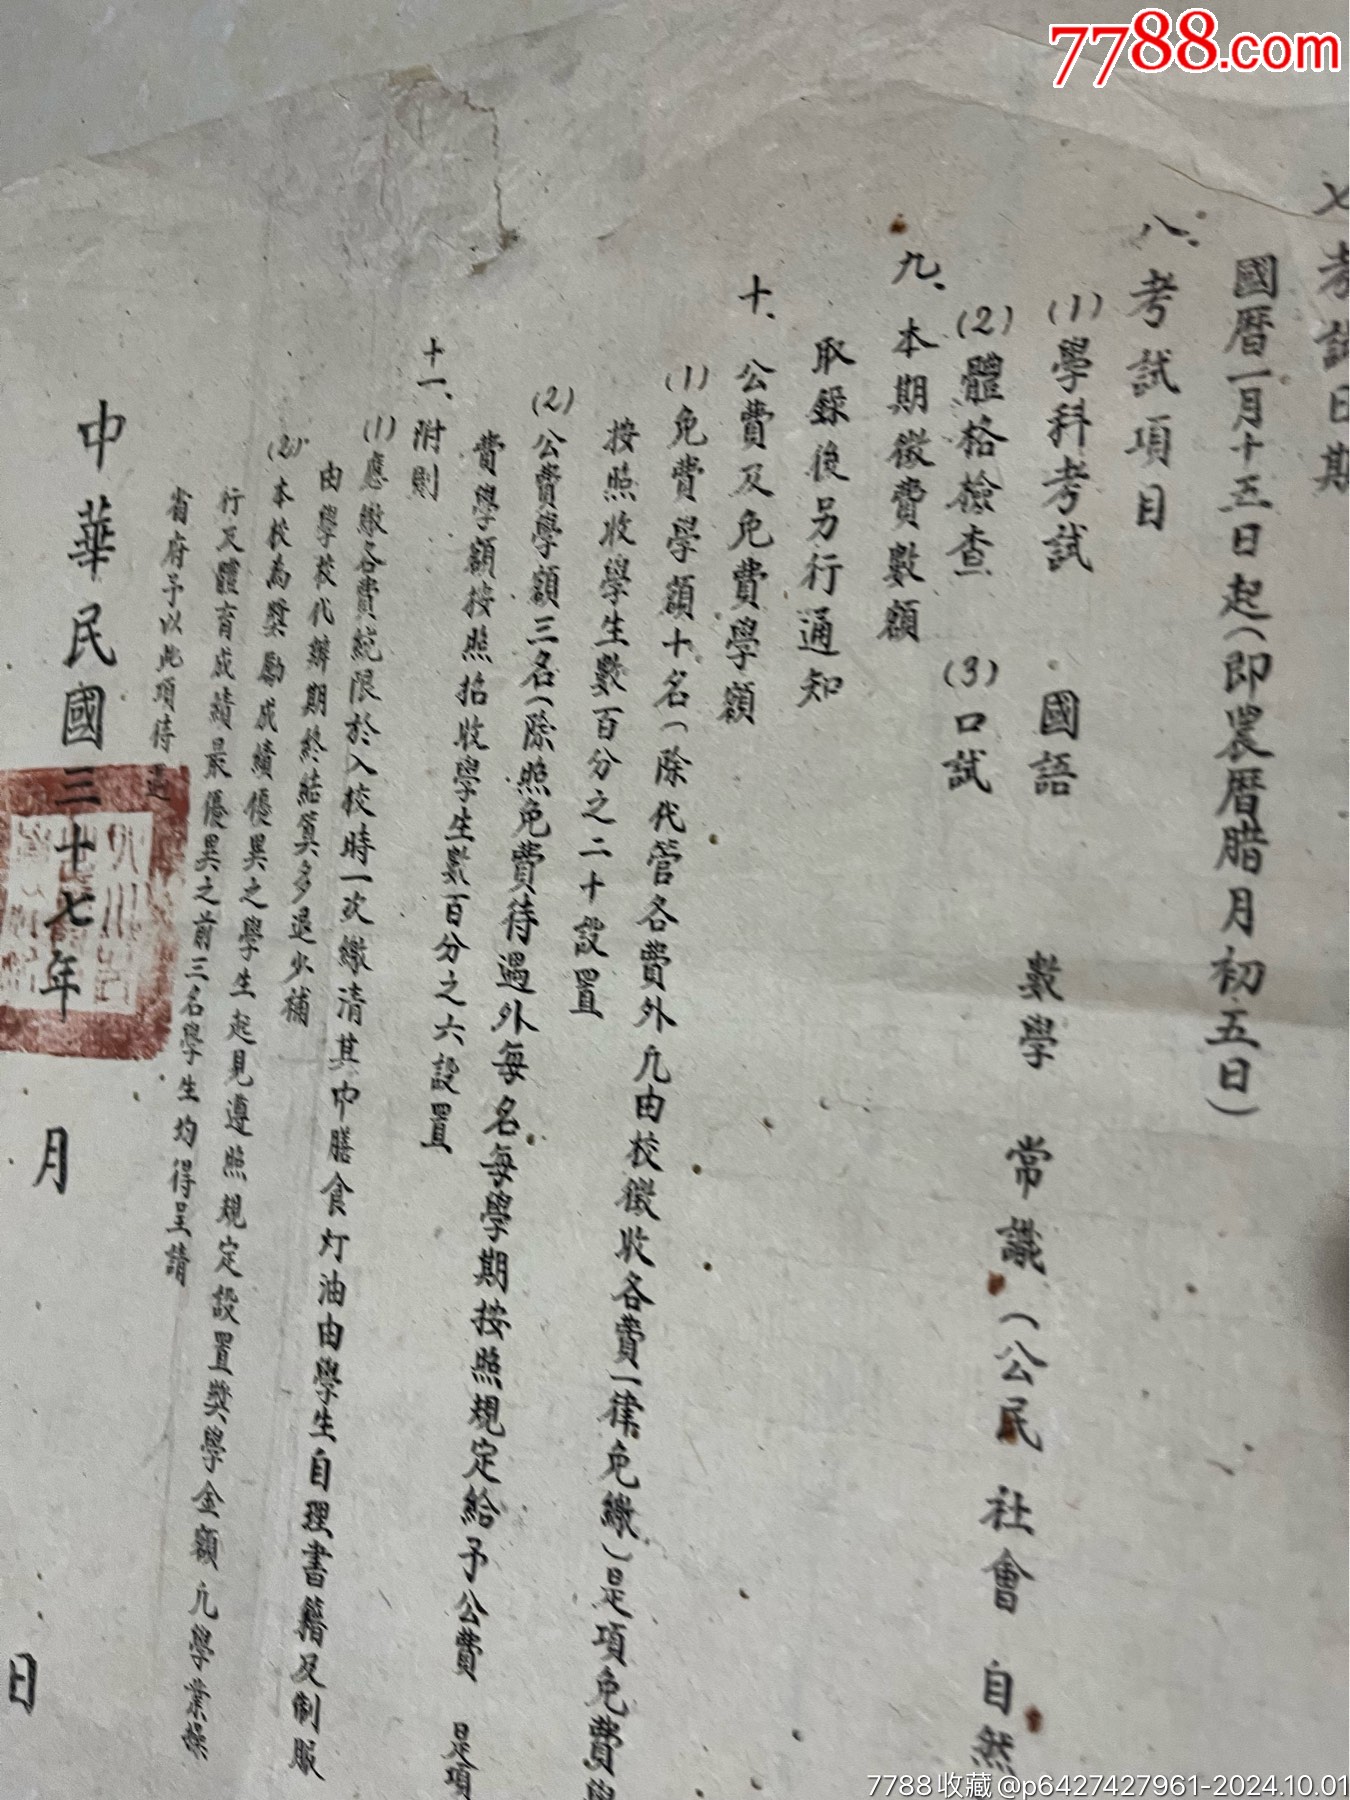 7788.com
七考試日期
國曆一月十五日起(即農曆腊月初五日)
八、考試項目
(1)學科考試 國語 數學 常識(公民 社會 自然
(2)體格檢查 (3)口試
九、本期徵費數額
取錄後另行通知
十、公費及免費學額
(1)免費學額十名(除代管各費外凡由校徵收各費一律免繳)是項免費學
按照收學生數百分之二十設置
(2)公費學額三名(除照免費待遇外每名每學期按照規定給予公費 是項
費學額按照招收學生數百分之六設置
十一、附則
(1)應繳各費統限於入校時一次繳清其中膳食灯油由學生自理書籍及制服
由學校代辦期終結算多退少補
(2)本校為獎勵成績優異之學生起見遵照規定設置獎學金額凡學業操
行及體育成績最優異之前三名學生均得呈請
省府予以此項待遇
中華民國三十七年 月 日
7788收藏@p6427427961-2024.10.01